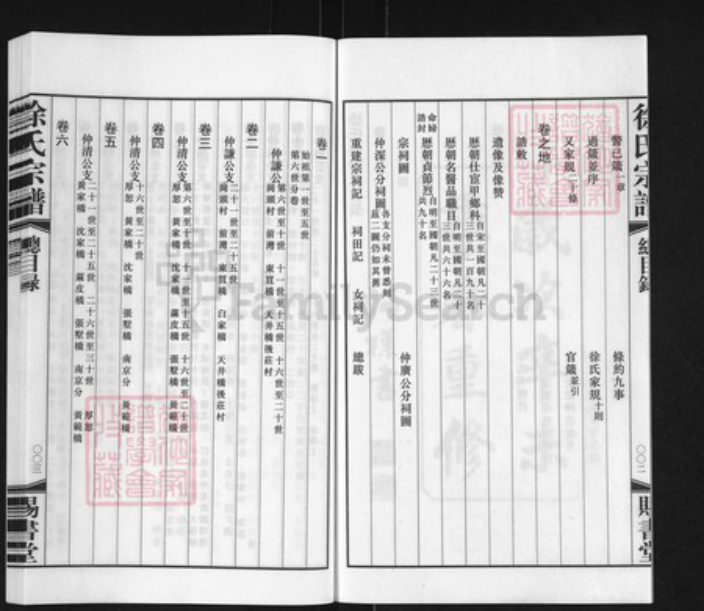 徐氏宗譜
總目錄
〇〇二
賜書堂
警己箴一章
條約九事
過箴並序
徐氏家規十則
又家規二十條
官箴並引
卷之地
誥敕
遺像及像贊
歷朝仕宦甲鄉科自宋至國朝凡二十三世共一百九十名
歷朝名醫品職目自明至國朝凡二十三世共六十六名
命婦誥封
歷朝貞節烈自明至國朝凡二十三世共九十名
宗祠圖
仲廣公分祠圖
仲深公分祠圖各支分祠未曾悉刻茲二圖仍如其舊
重建宗祠記 祠田記 女祠記 總跋
卷一
始祖第一世至五世
第六世分卷
仲謙公第六世至十世 十一世至十五世 十六世至二十世
蔄頭村 前灣 東亘橋 天井橋後莊村
卷二
仲謙公二十一世至二十五世
蔄頭村 前灣 東亘橋 白家橋 天井橋後莊村
卷三
仲清公支第六世至十世 十一世至十五世 十六世至二十世
厚恕 黃家橋 沈家橋 蘆皮橋 張墅橋 黃範橋
卷四
仲清公支十六世至二十世
厚恕 黃家橋 沈家橋 張墅橋 南京分 黃範橋
卷五
仲清公支二十一世至二十五世 二十六世至三十世 厚恕
黃家橋 沈家橋 蘆皮橋 張墅橋 南京分 黃範橋
卷六
徐氏宗譜
總目錄
〇〇三
賜書堂
FamilySearch